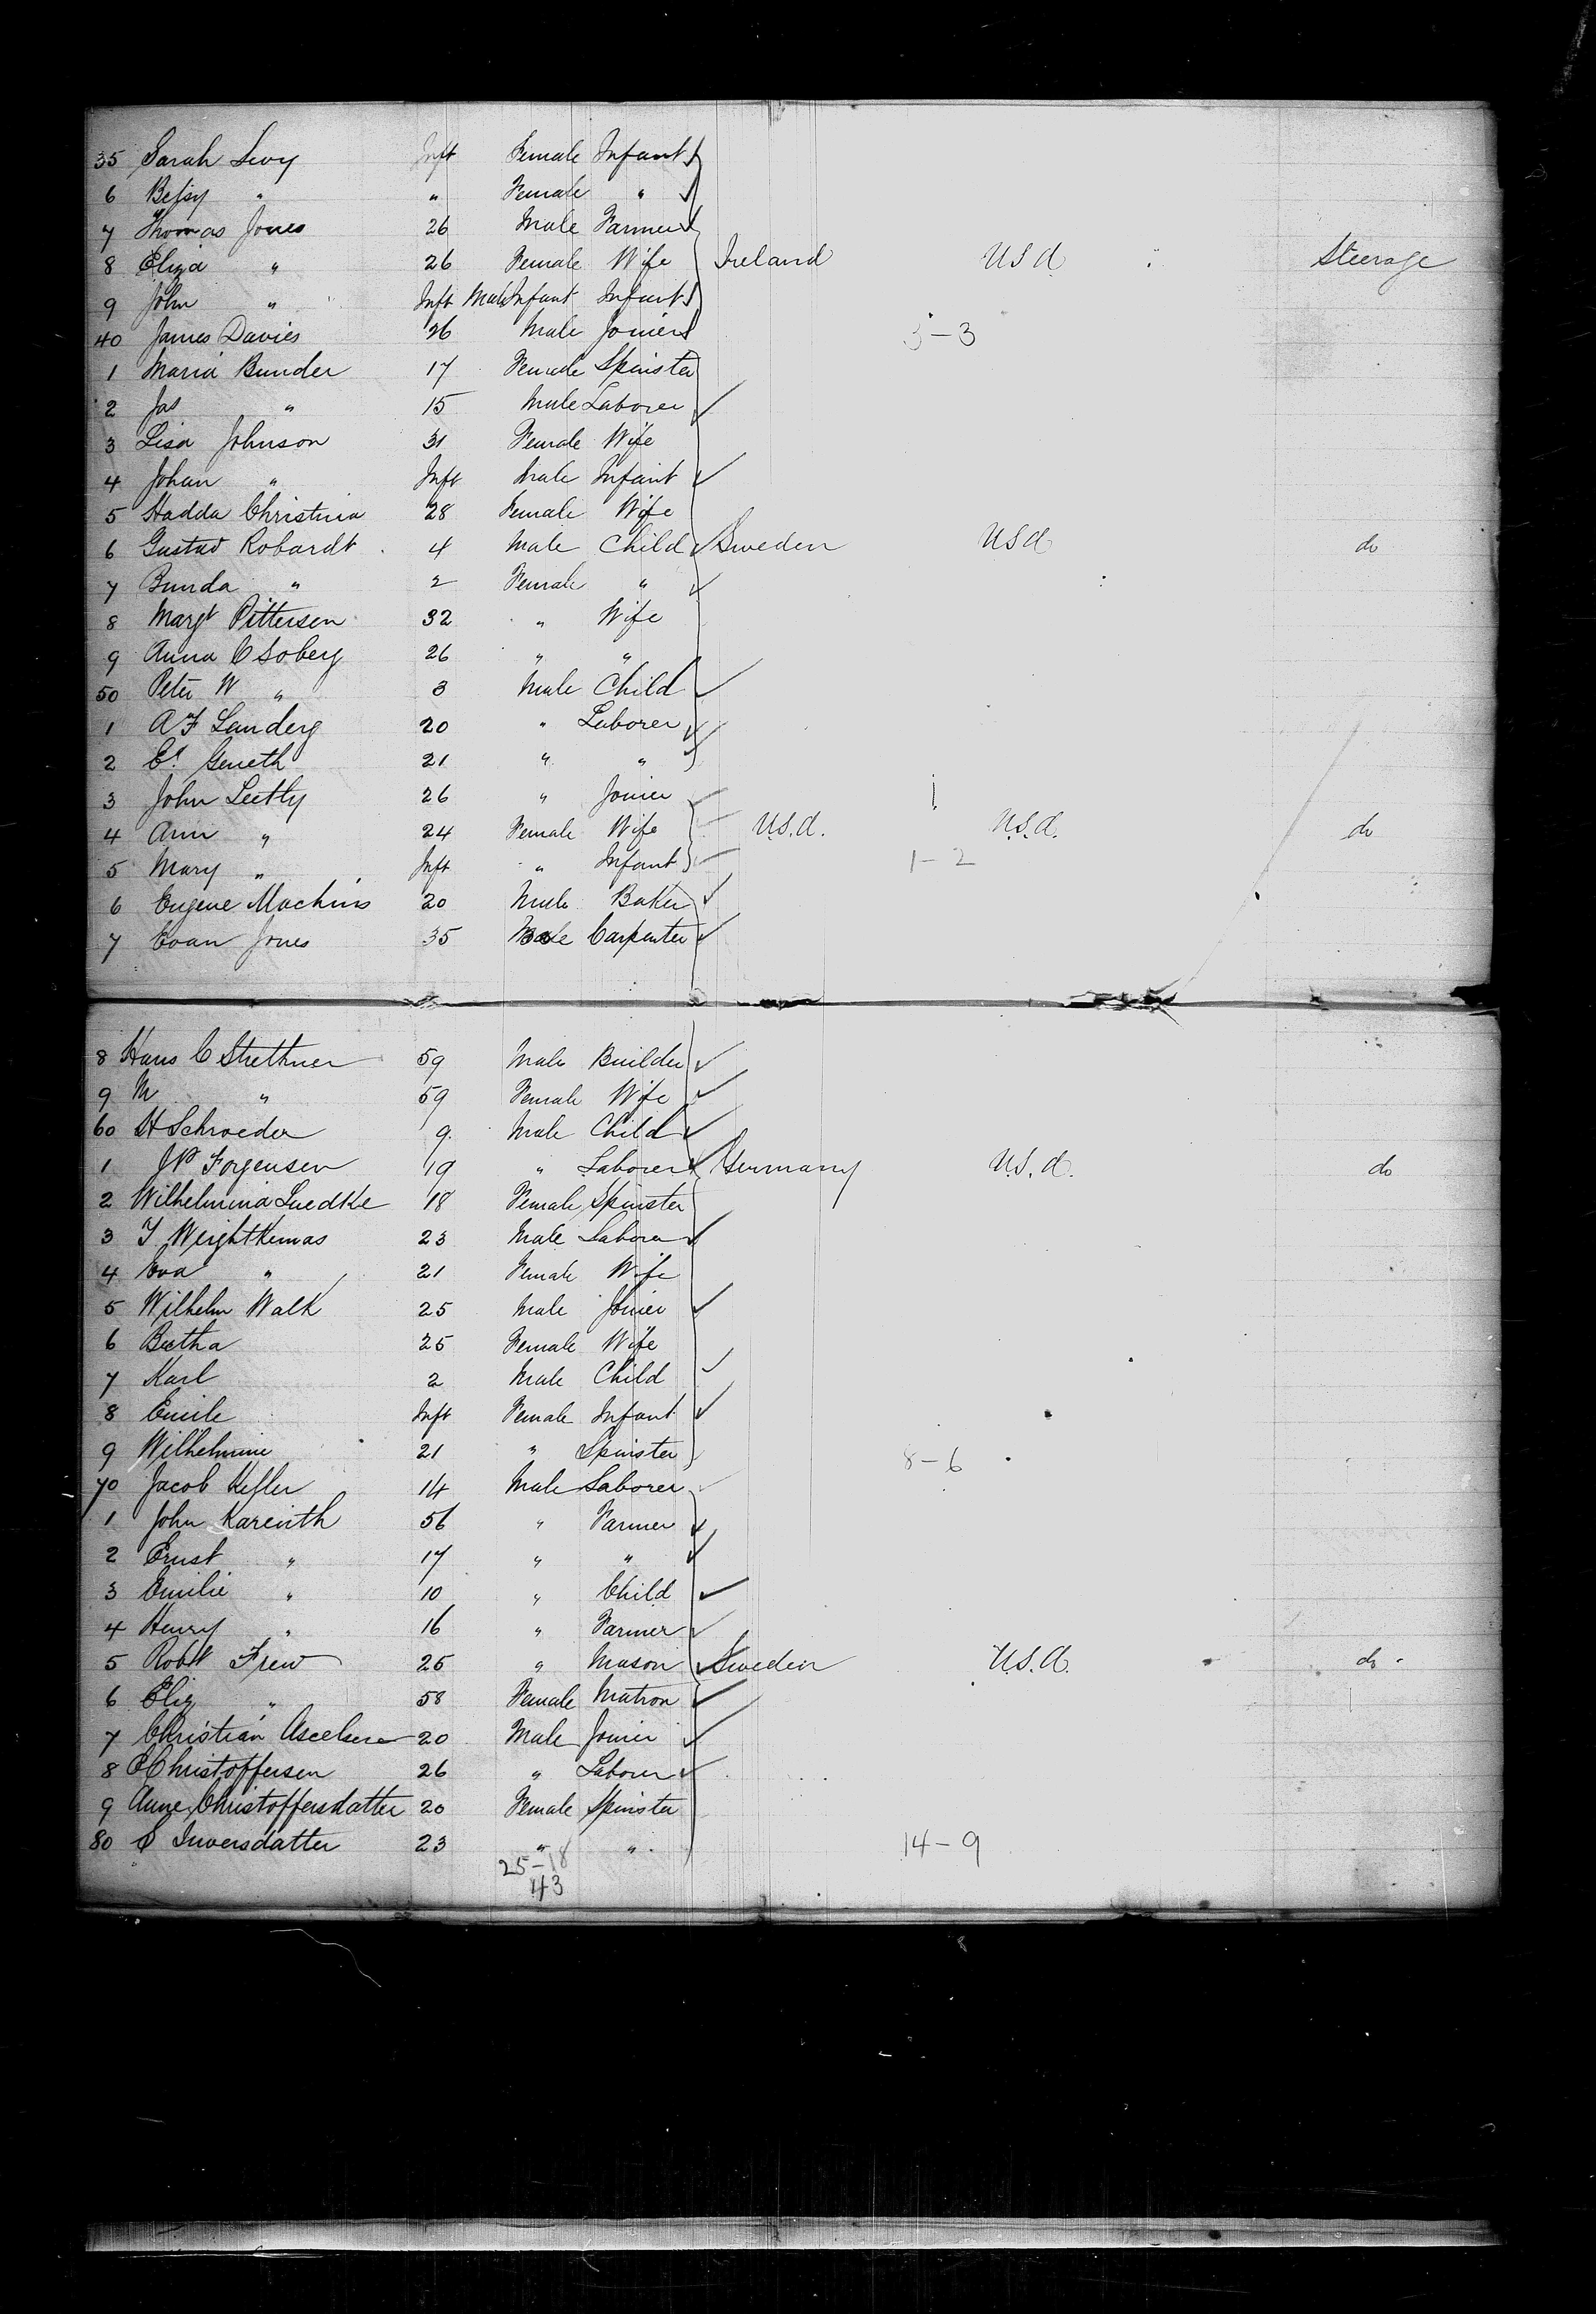 35 Sarah Levy Inft Female Infant
6 Betsy " " Female "
7 Thomas Jones 26 Male Farmer
8 Eliza " 26 Female Wife Ireland USA Steerage
9 John " Inft Male Infant Infant
40 James Davies 26 Male Joiner 3-3
1 Maria Bunder 17 Female Spinster
2 Jas " 15 Male Laborer
3 Lisa Johnson 31 Female Wife
4 Johan " Inft Male Infant
5 Hadda Christina 28 Female Wife
6 Gustav Robardt 4 Male Child Sweden USA do
7 Bunda " 2 Female "
8 Margt Pittersen 32 " Wife
9 Anna C Soberg 26 " "
50 Peter W " 3 Male Child
1 A F Landerg 20 " Laborer
2 Geneth 21 " "
3 John Leetly 26 " Joiner
4 Ann " 24 Female Wife U.S.A. U.S.A. do
5 Mary " Inft " Infant 1-2
6 Eugene Machins 20 Male Baker
7 Evan Jones 35 Male Carpenter
8 Hans C Strethner 59 Male Builder
9 M " 59 Female Wife
60 H Schroeder 9 Male Child
1 JP Jorgensen 19 " Laborer Germany U.S.A. do
2 Wilhelmina Luedtke 18 Female Spinster
3 Weightkemas 23 Male Laborer
4 Eva " 21 Female Wife
5 Wilhelm Walk 25 Male Joiner
6 Bertha 25 Female Wife
7 Karl 2 Male Child
8 Emile Inft Female Infant
9 Wilhelmine 21 " Spinster 8-6
70 Jacob Kesler 14 Male Laborer
1 John Kareinth 56 " Farmer
2 Ernst " 17 " "
3 Emilie " 10 " Child
4 Henry " 16 " Farmer
5 Robt Frew 25 " Mason Sweden U.S.A. do
6 Eliz " 58 Female Matron
7 Christian Ascelsen 20 Male Joiner
8 Christoffersen 26 " Laborer
9 Anne Christoffersdatter 20 Female Spinster
80 Inversdatter 23 " " 14-9
25-18
43